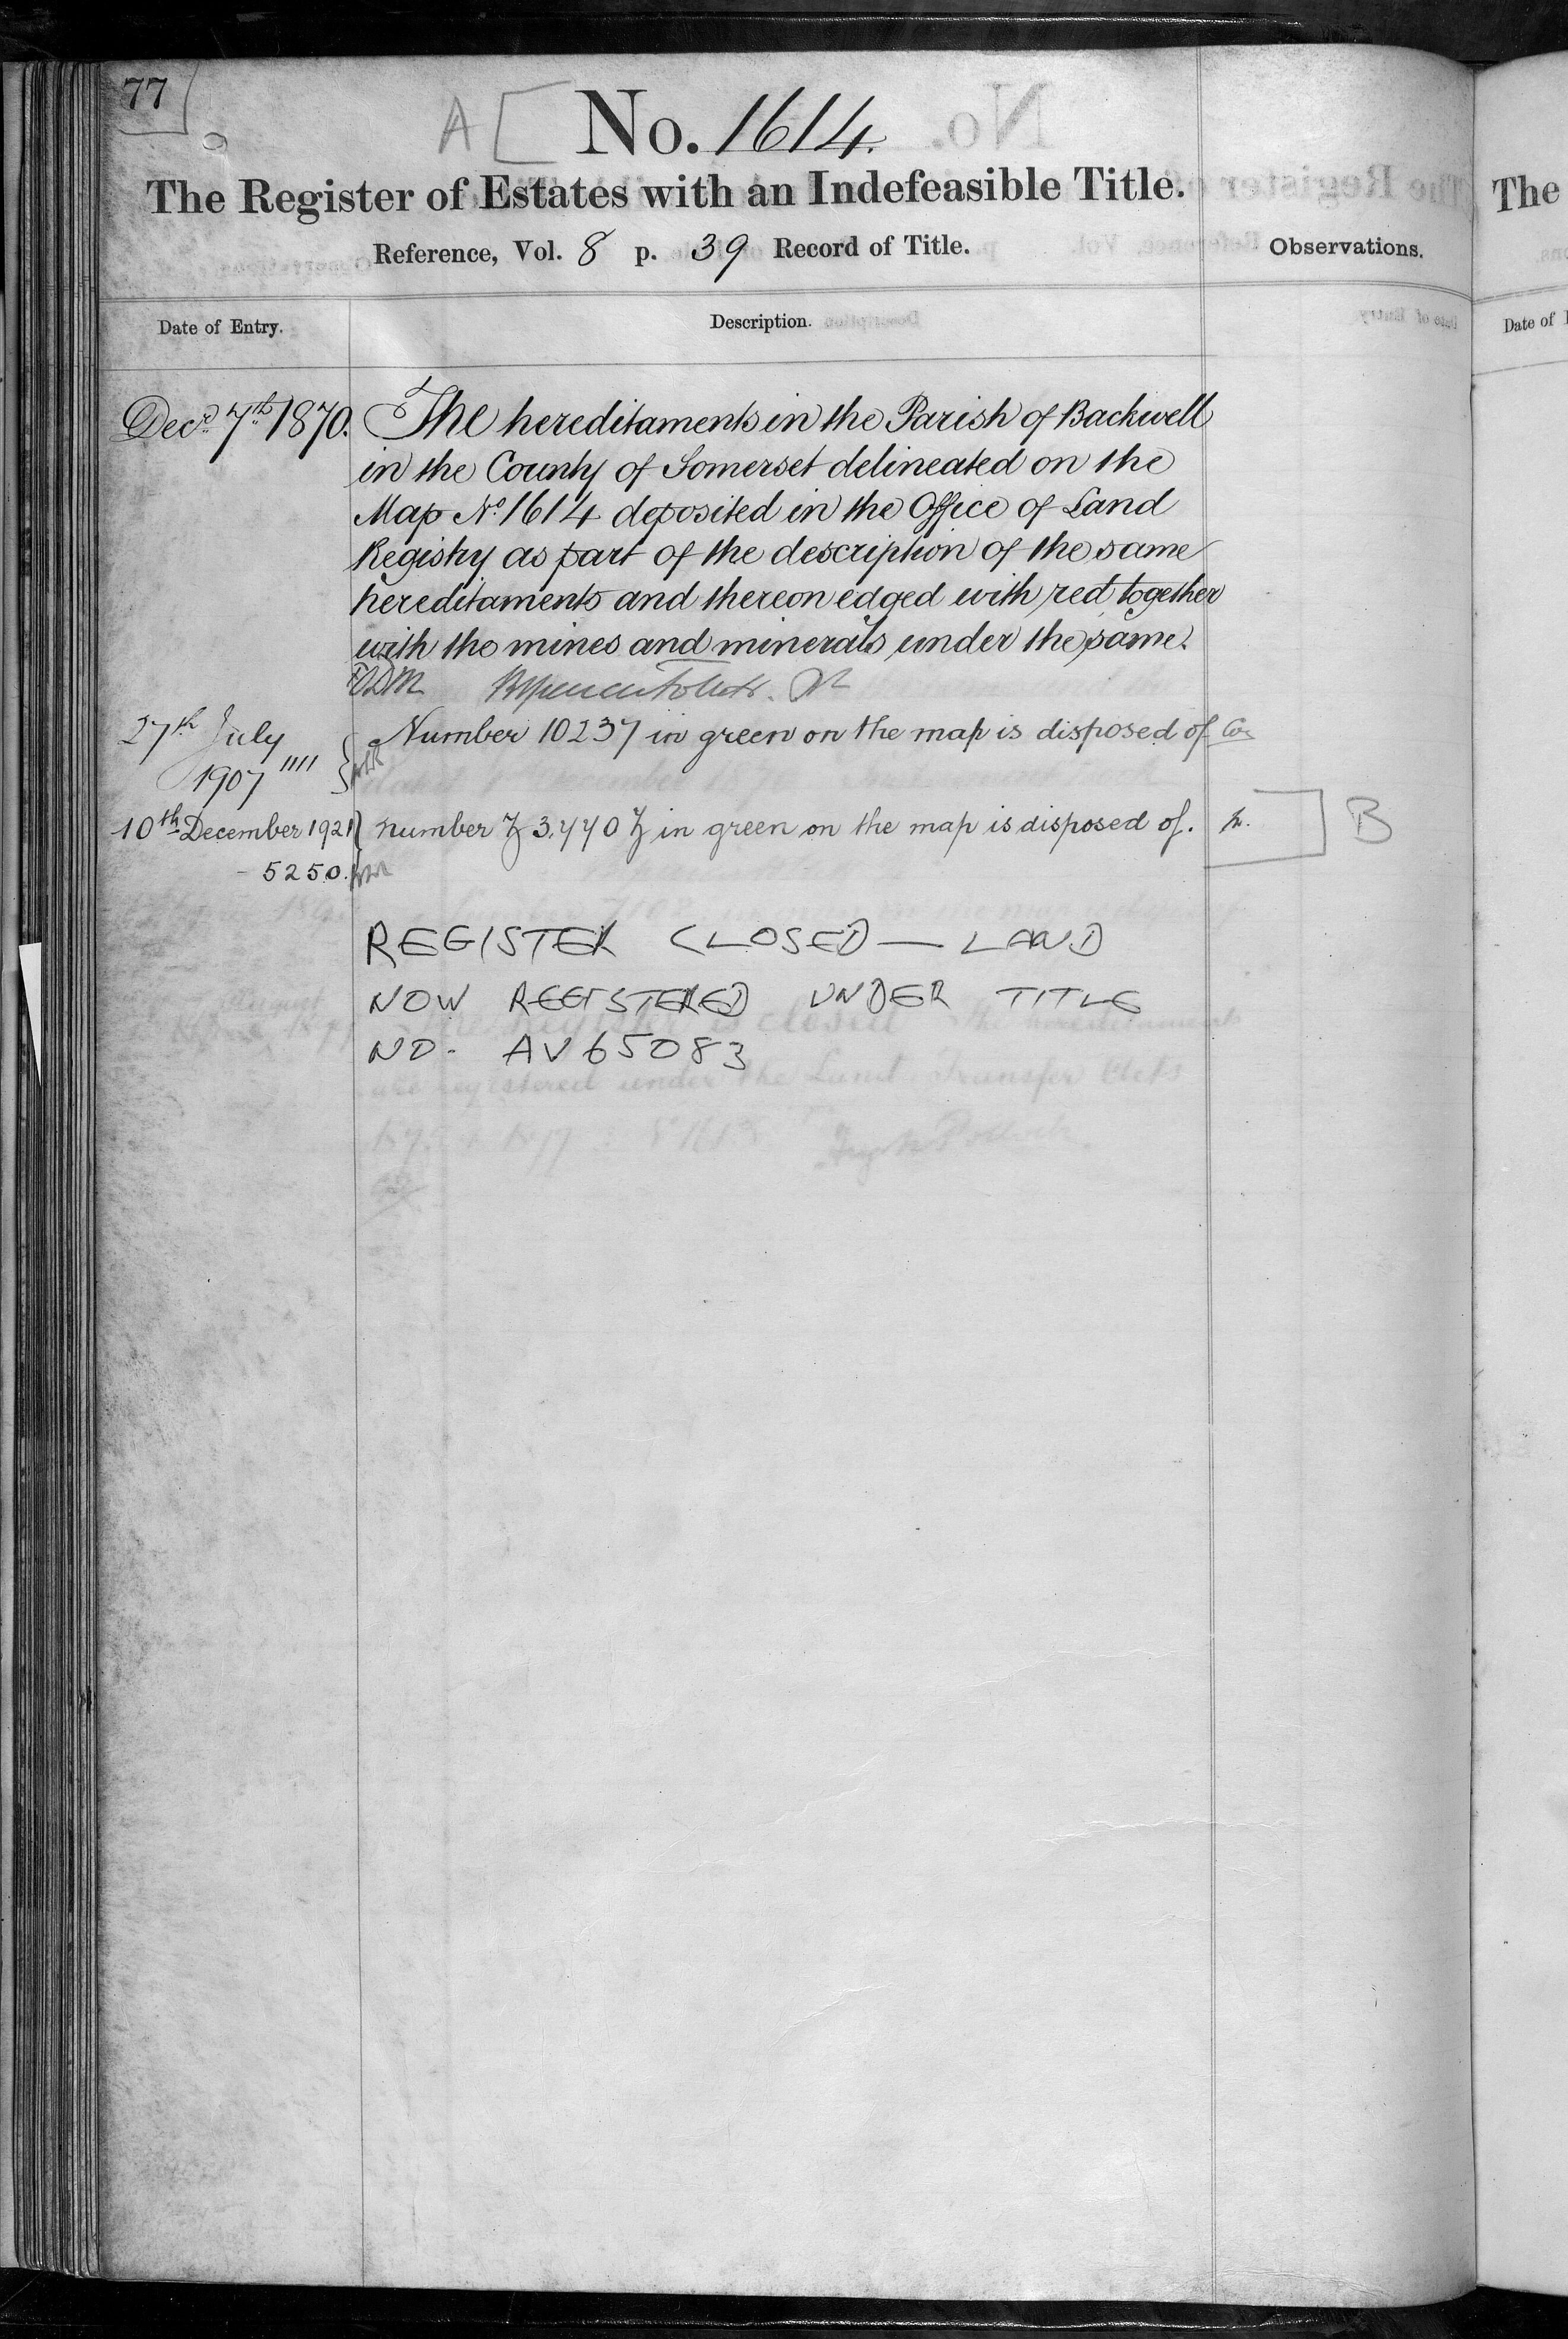 77
A No. 1614.
The Register of Estates with an Indefeasible Title.
Reference, Vol. 8 p. 39 Record of Title.
Observations.
Date of Entry.
Description.
Decr. 7th 1870. The hereditaments in the Parish of Backwell
in the County of Somerset delineated on the
Map No. 1614 deposited in the Office of Land
Registry as part of the description of the same
hereditaments and thereon edged with red together
with the mines and minerals under the same.
27th July 1907 Number 10237 in green on the map is disposed of
10th December 1921 number in green on the map is disposed of. B
5250.
REGISTER CLOSED — LAND
NOW REGISTERED UNDER TITLE
NO. AV65083
The
Date of